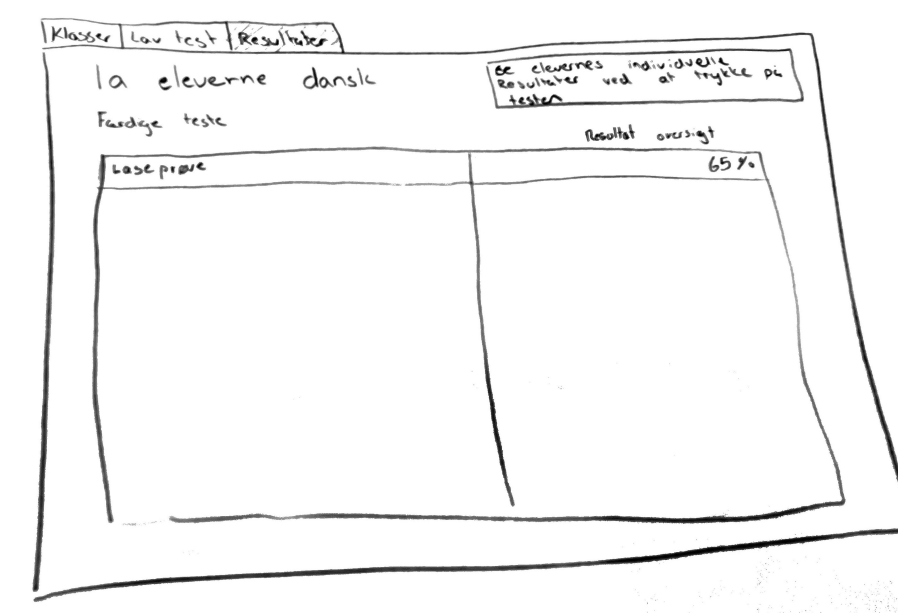 Klasser Lav test Resultater
1a eleverne dansk
Se elevernes individuelle
Resultater ved at trykke på
testen
Færdige teste
Resultat oversigt
Læseprøve 65%